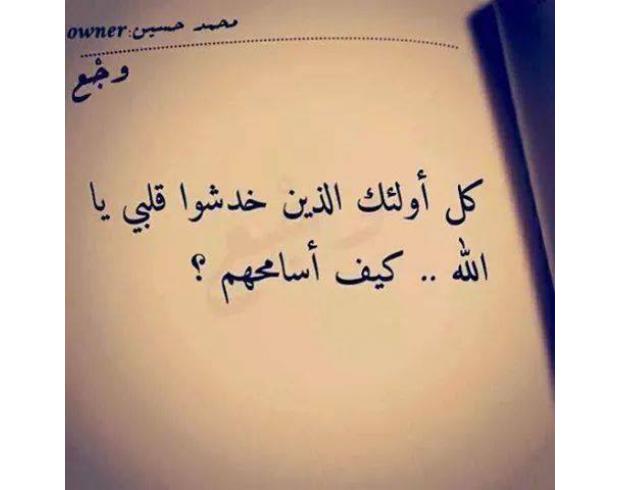 محمد حسين:owner
وجْع
كل أولئك الذين خدشوا قلبي يا
الله .. كيف أسامحهم ؟